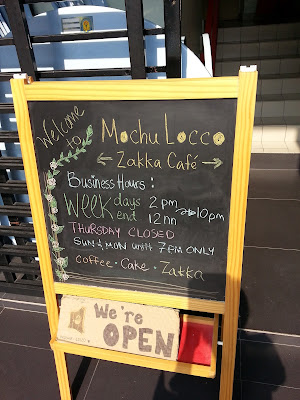 Welcome to
Mochu Locco
← Zakka Café →
Business Hours :
WEEK days 2 pm → 10pm
end 12nn
THURSDAY CLOSED
SUN & MON until 7 PM ONLY
coffee · Cake · Zakka
We're
OPEN